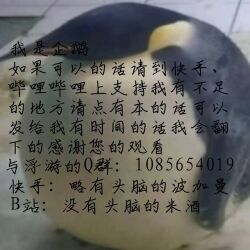 我是企鹅
如果可以的话请到快手、
哔哩哔哩上支持我有不足
的地方请点有本的话可以
发给我有时间的话我会翻
下的感谢您的观看
与浮游的Q群：1085654019
快手：略有头脑的波加曼
B站：没有头脑的米酒